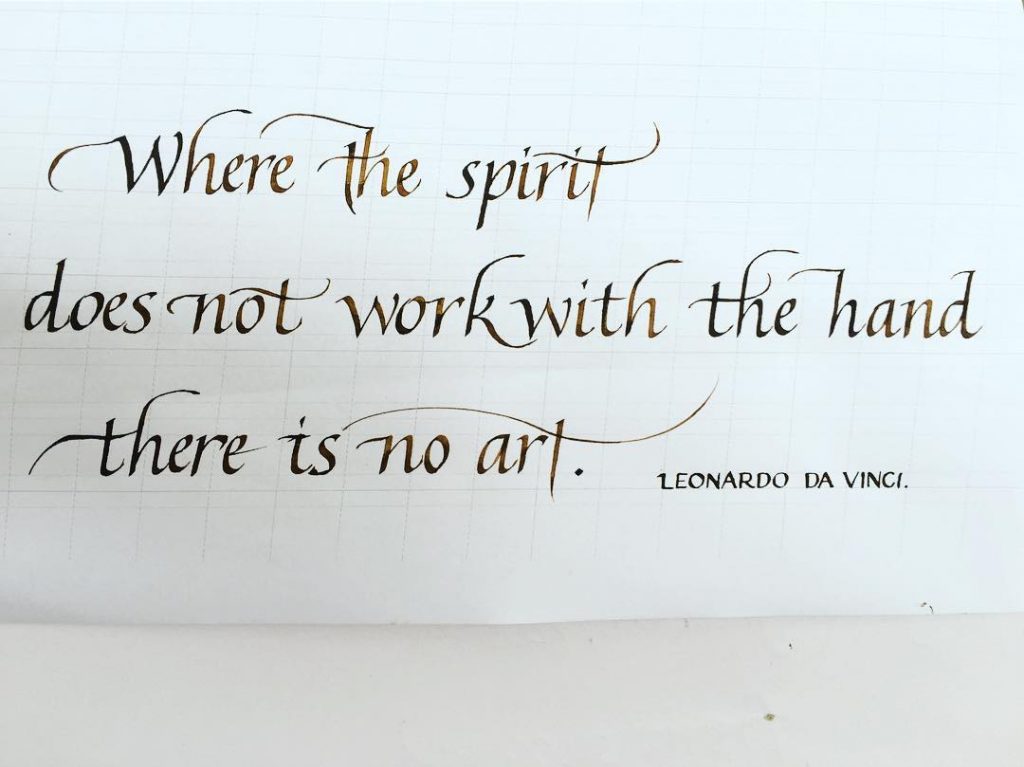 Where the spirit
does not work with the hand
there is no art.
LEONARDO DA VINCI.